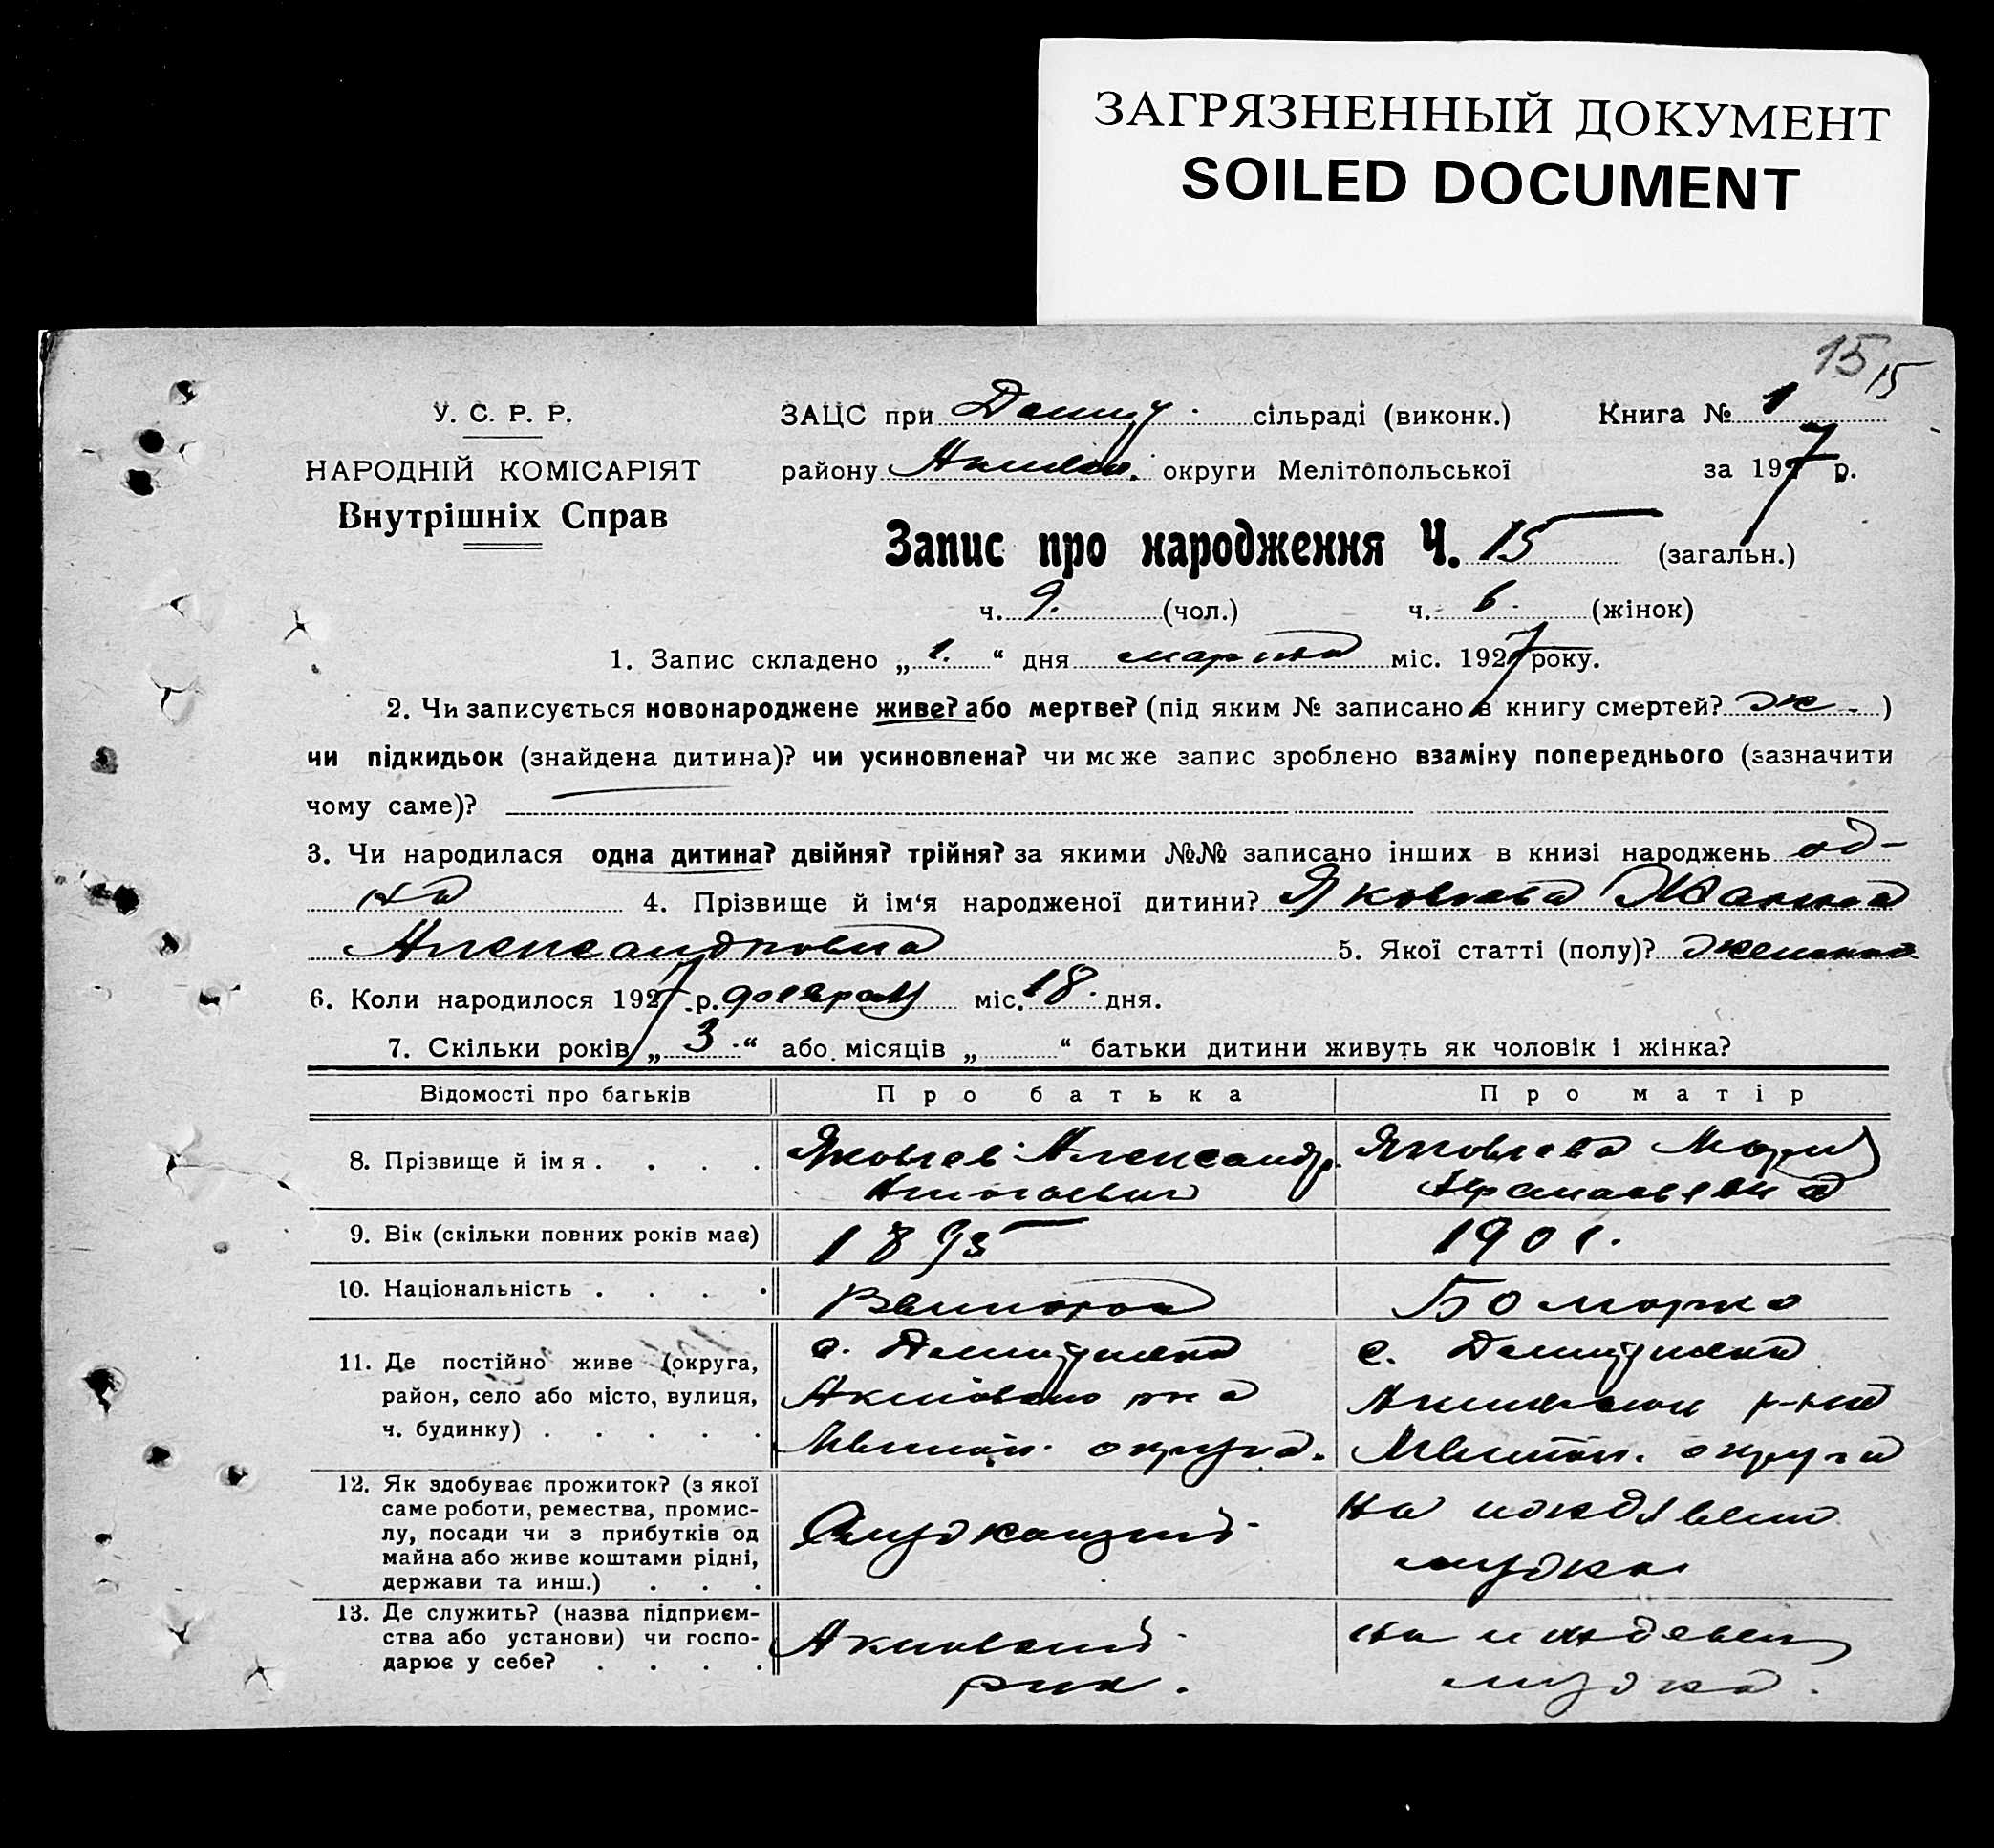 ЗАГРЯЗНЕННЫЙ ДОКУМЕНТ
SOILED DOCUMENT
15 15
У. С. Р. Р.
НАРОДНІЙ КОМІСАРІЯТ
Внутрішніх Справ
ЗАЦС при сільраді (виконк.) Книга № 1
району округи Мелітопольської за 1927 р.
Запис про народження Ч. 15 (загальн.)
ч. 9. (чол.) ч. 6. (жінок)
1. Запис складено „ 1. “ дня марта міс. 1927 року.
2. Чи записується новонароджене живе? або мертве? (під яким № записано в книгу смертей? ж. )
чи підкидьок (знайдена дитина)? чи усиновлена? чи може запис зроблено взаміну попереднього (зазначити
чому саме)?
3. Чи народилася одна дитина? двійня? трійня? за якими №№ записано інших в книзі народжень од-
на 4. Прізвище й ім‘я народженої дитини? Яковлева Жанна
Александровна 5. Якої статті (полу)? женская
6. Коли народилося 1927 р. февраля міс. 18. дня.
7. Скільки років „ 3 “ або місяців „ “ батьки дитини живуть як чоловік і жінка?
Відомості про батьків Про батька Про матір
8. Прізвище й імя . . . . Яковлев Александр Яковлева Мария
9. Вік (скільки повних років має) 1895 1901.
10. Національність . . . .
11. Де постійно живе (округа,
район, село або місто, вулиця,
ч. будинку) . . . . .
с. с.
р-на р-на
Мелитоп. округа. Мелитоп. округа
12. Як здобуває прожиток? (з якої
саме роботи, ремества, промис-
лу, посади чи з прибутків од
майна або живе коштами рідні,
держави та инш.) . . .
Служащий
На иждивении
мужа
13. Де служить? (назва підприєм-
ства або установи) чи госпо-
дарює у себе? . . . .
Акимовский
рик.
на иждевен
мужа.